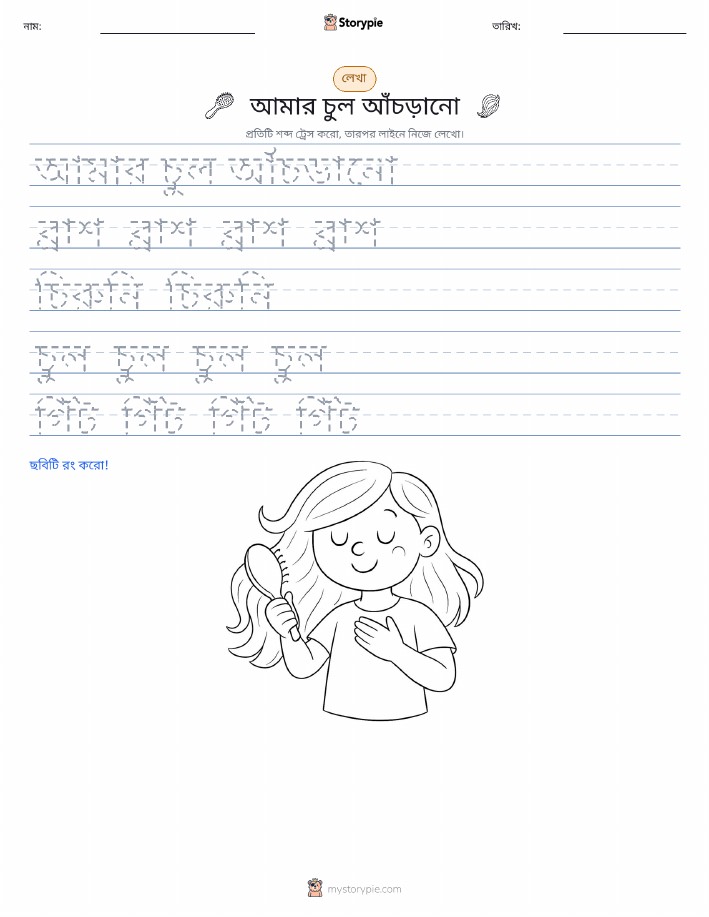 নাম:
Storypie
তারিখ:
লেখা
আমার চুল আঁচড়ানো
প্রতিটি শব্দ ট্রেস করো, তারপর লাইনে নিজে লেখো।
আমার চুল আঁচড়ানো
ব্রাশ ব্রাশ ব্রাশ ব্রাশ
চিরুনি চিরুনি
চুল চুল চুল চুল
গিঁট গিঁট গিঁট গিঁট
ছবিটি রং করো!
mystorypie.com